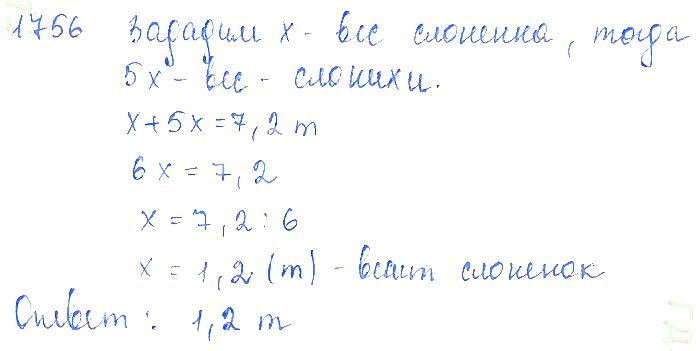 1756 Зададим x - вес слоненка, тогда
5x - вес - слонихи.
x + 5x = 7,2 т
6x = 7,2
x = 7,2 : 6
x = 1,2 (т) - весит слоненок
Ответ: 1,2 т